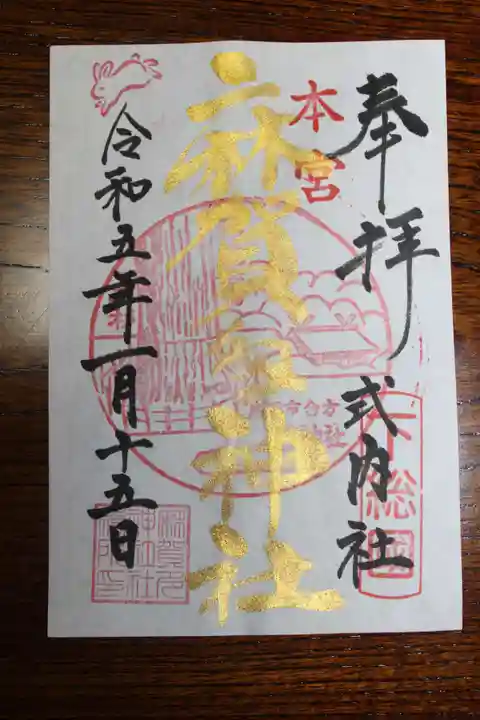 奉拝
式内社
下総國
本宮
麻賀多神社
市台方
社
令和五年一月十五日